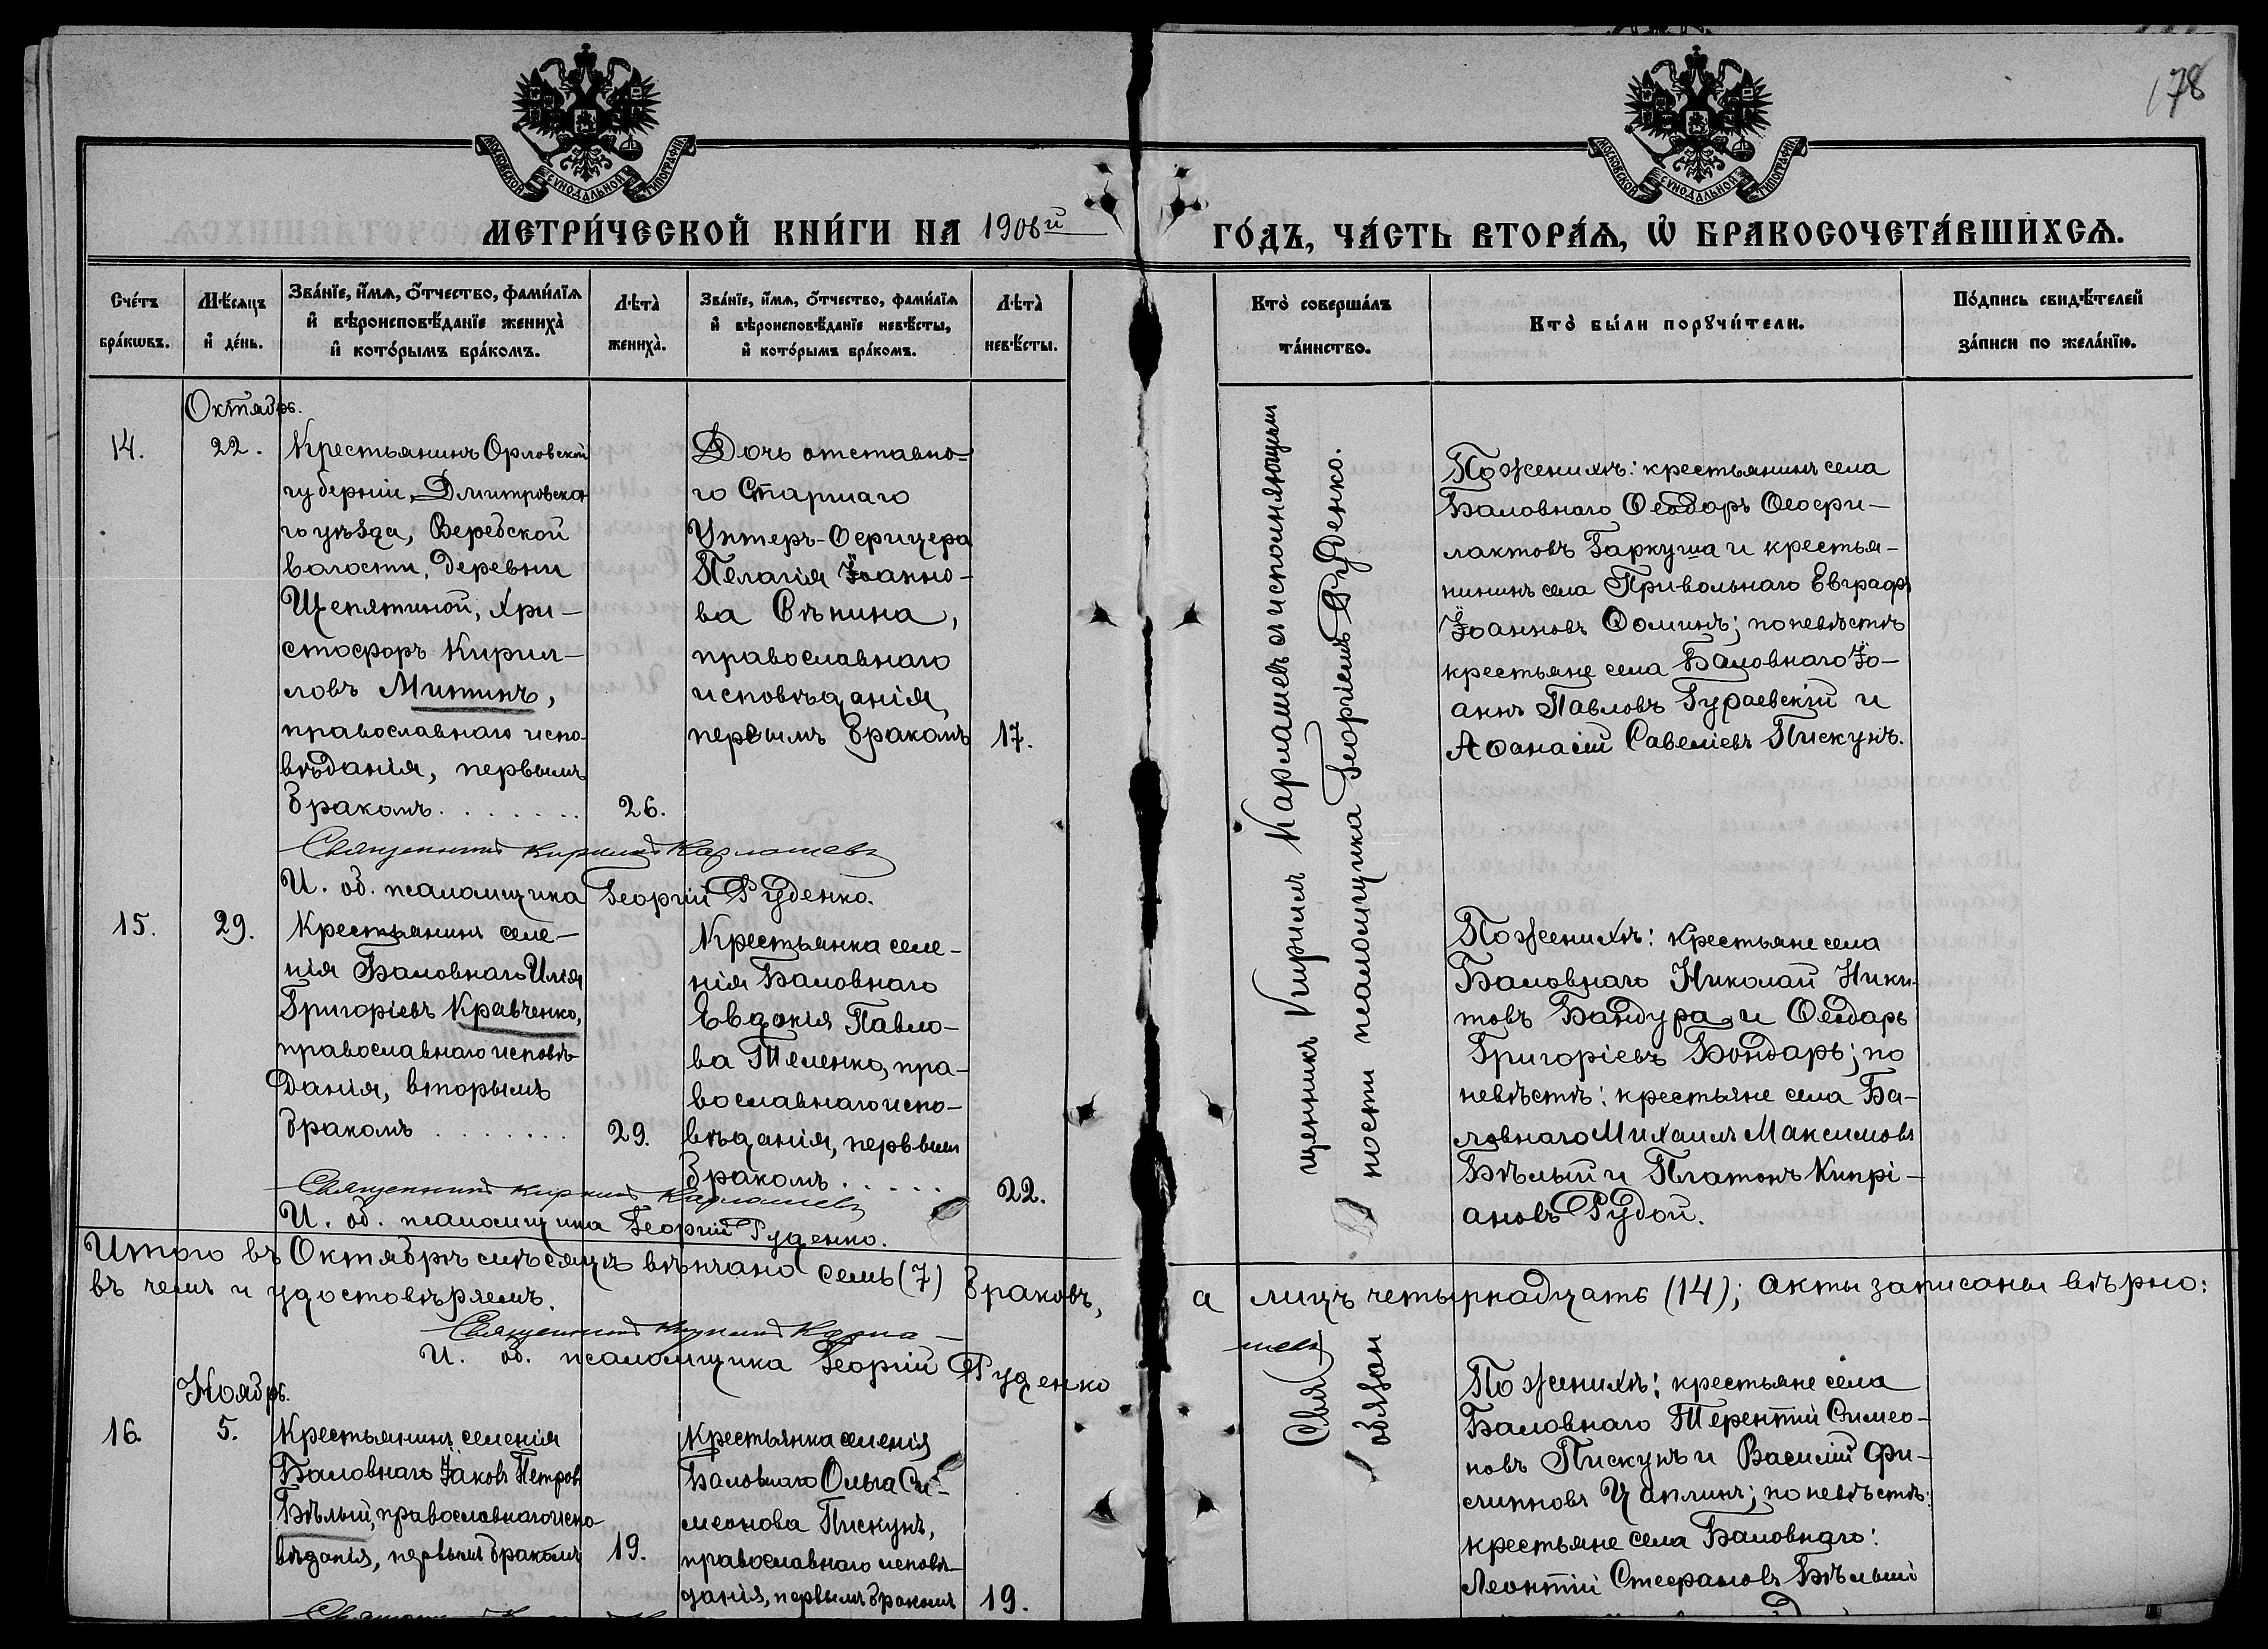 178
МОСКОВСКОЙ СѴНОДАЛЬНОЙ ТИПОГРАФІИ
МОСКОВСКОЙ СѴНОДАЛЬНОЙ ТИПОГРАФІИ
МЕТРИ́ЧЕСКОЙ КНИ́ГИ НА 1906й ГО́ДЪ, ЧА́СТЬ ВТОРА́Ѧ, Ѡ҆ БРАКОСОЧЕТА́ВШИХСѦ.
Сче́тъ бра́кѡвъ.
Мѣ́сяцъ и҆ де́нь.
Зва́нїе, и҆́мѧ, ѻ҆́тчество, фами́лїѧ
и҆ вѣроисповѣ́данїе жениха̀
и҆ кото́рымъ бра́комъ.
Лѣ́та̀ жениха̀.
Зва́нїе, и҆́мѧ, ѻ҆́тчество, фами́лїѧ
и҆ вѣроисповѣ́данїе невѣ́сты,
и҆ кото́рымъ бра́комъ.
Лѣ́та̀ невѣ́сты.
Кто̀ соверша́лъ
та́инство.
Кто̀ бы́ли порꙋчи́тели.
По́дпись свидѣ́телей
за́писи по жела́нїю.
Октябрь.
14.
22.
Крестьянинъ Орловской
губерніи, Дмитровска-
го уѣзда, Веребской
волости, деревни
Щепятиной, Хри-
стофоръ Кирил-
ловъ Митинъ,
православнаго испо-
вѣданія, первымъ
бракомъ.......
26.
Дочь отставно-
го Старшаго
Унтеръ-Офицера
Пелагія Іоанно-
ва Сѣнина,
православнаго
исповѣданія,
первымъ бракомъ
17.
Священникъ Кириллъ Карлашевъ
И. об. псаломщика Георгій Руденко.
По женихѣ: крестьянинъ села
Баловнаго Ѳеодоръ Ѳеофи-
лактовъ Гаркуша и крестья-
нинъ села Привольнаго Евграфъ
Іоанновъ Ѳоминъ; по невѣстѣ
крестьяне села Баловнаго Іо-
аннъ Павловъ Гураевскій и
Аѳанасій Савеліевъ Пискунъ.
15.
29.
Крестьянинъ селе-
нія Баловнаго Илія
Григоріевъ Кравченко,
православнаго исповѣ-
данія, вторымъ
бракомъ.......
29.
Крестьянка селе-
нія Баловнаго
Евдокія Павло-
ва Теленко, пра-
вославнаго испо-
вѣданія, первымъ
бракомъ.....
22.
Священникъ Кириллъ Карлашевъ
И. об. псаломщика Георгій Руденко.
По женихѣ: крестьяне села
Баловнаго Николай Ники-
товъ Бандура и Ѳеодоръ
Григоріевъ Бондарь; по
невѣстѣ: крестьяне села Ба-
ловнаго Михаилъ Максимовъ
Бѣлый и Платонъ Кипрі-
ановъ Рудой.
Священникъ Кириллъ Карлашевъ съ исполняющимъ
обязанности псаломщика Георгіемъ Руденко.
Итого въ Октябрѣ мѣсяцѣ вѣнчано семь (7) браковъ, а лицъ четырнадцать (14); акты записаны вѣрно:
въ чемъ и удостовѣряемъ.
Священникъ Кириллъ Карлашевъ
И. об. псаломщика Георгій Руденко
Ноябрь.
16.
5.
Крестьянинъ селенія
Баловнаго Іаковъ Петровъ
Бѣлый, православнаго испо-
вѣданія, первымъ бракомъ
19.
Крестьянка селенія
Баловнаго Ольга Си-
меонова Пискунъ,
православнаго исповѣ-
данія, первымъ бракомъ
19.
По женихѣ: крестьяне села
Баловнаго Терентій Симео-
новъ Пискунъ и Василій Фи-
липповъ Цаплинъ; по невѣстѣ:
крестьяне села Баловнаго:
Леонтій Стефановъ Бѣлый